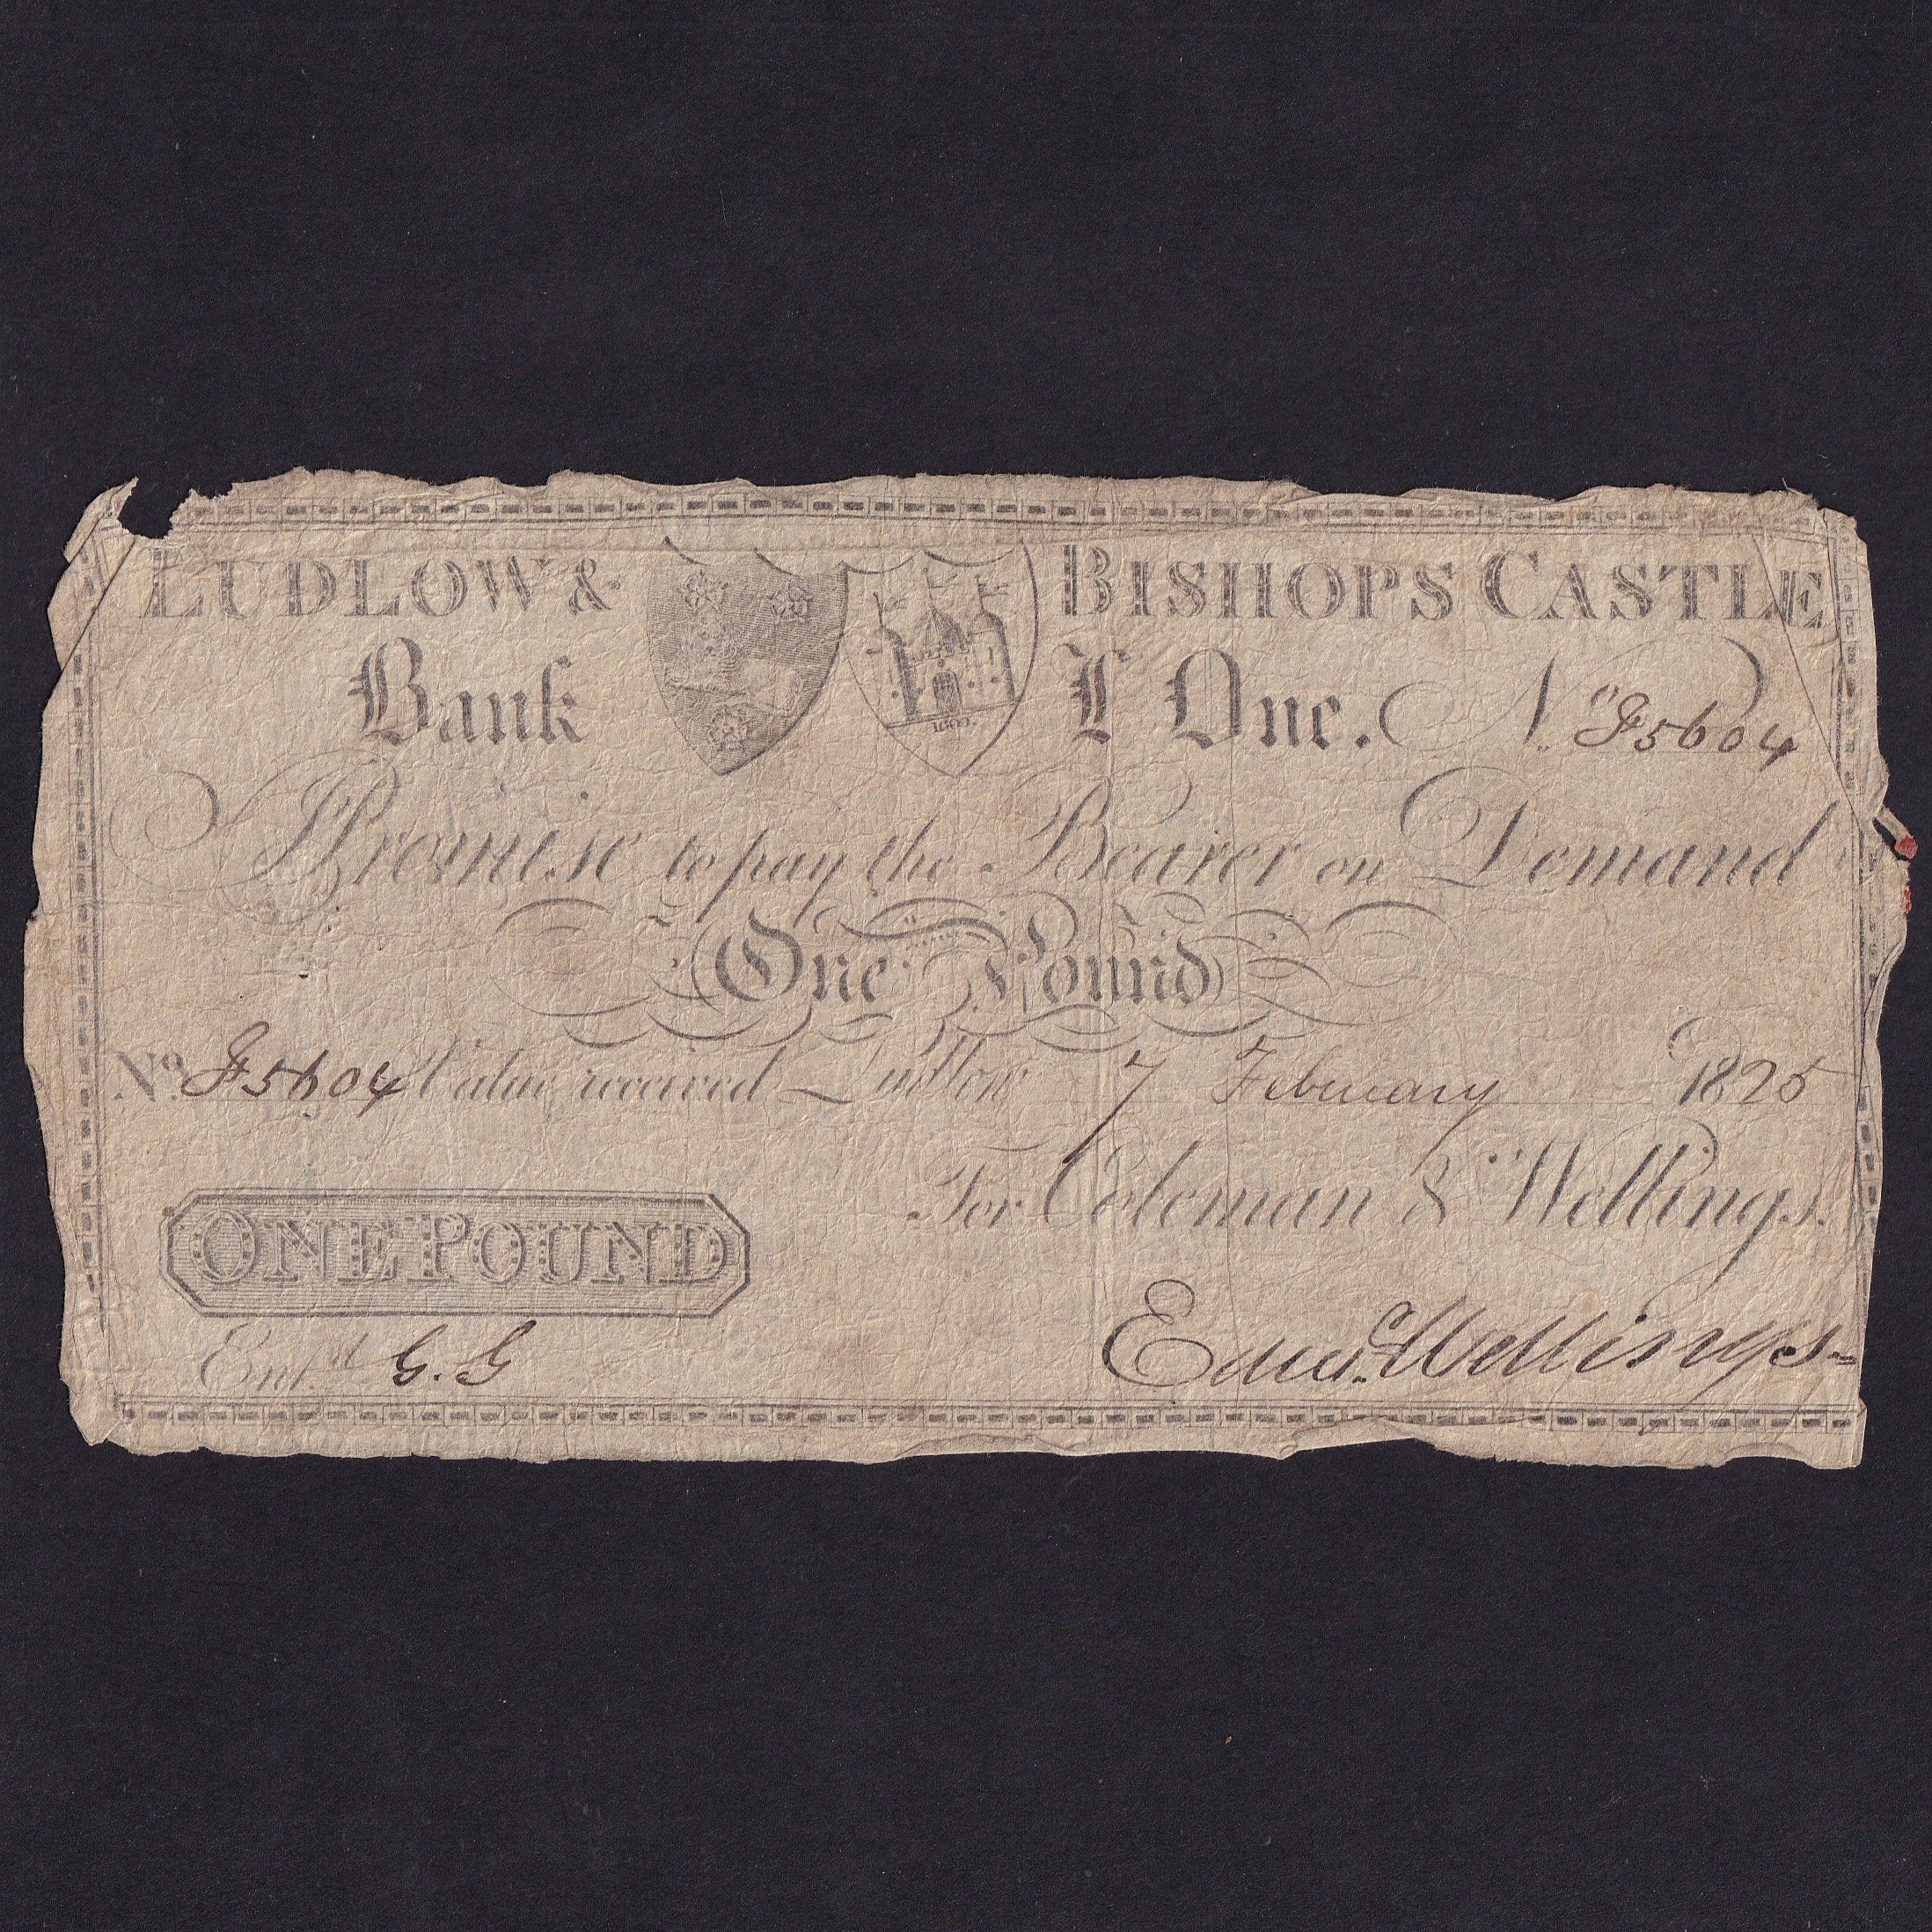 LUDLOW & BISHOPS CASTLE
Bank £ One. No. F5604
I Promise to pay the Bearer on Demand
One Pound
No. F5604 Value received Ludlow 7 February 1825
For Coleman & Wellings.
ONE POUND
Ent.d G. G
Edwd. Wellings